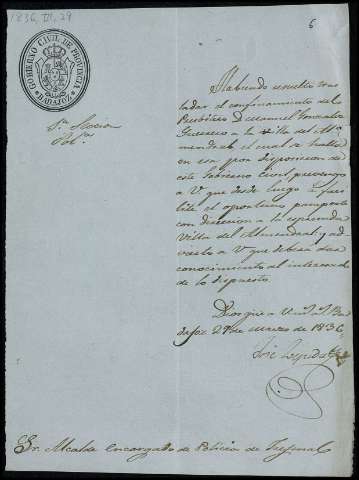 1836, III, 29
6
GOBIERNO CIVIL DE PROVINCIA
BADAJOZ
Habiendo resuelto tras
ladar el confinamiento del
Presbitero D. Manuel Gonzalez
Guerrero a la Villa del Al
mendral el cual se halla
en esa por disposicion de
este Gobierno Civil, prevengo
a V. que desde luego le faci
lite el oportuno pasaporte
con direccion a la espresada
Villa del Almendral, y ad
vierto a V. que debera dar
conocimiento al interesado
de lo dispuesto.
Dios gue a V. Ba
dajoz 29 de marzo de 1836
José
Sr. Alcalde encargado de Policia de Fregenal